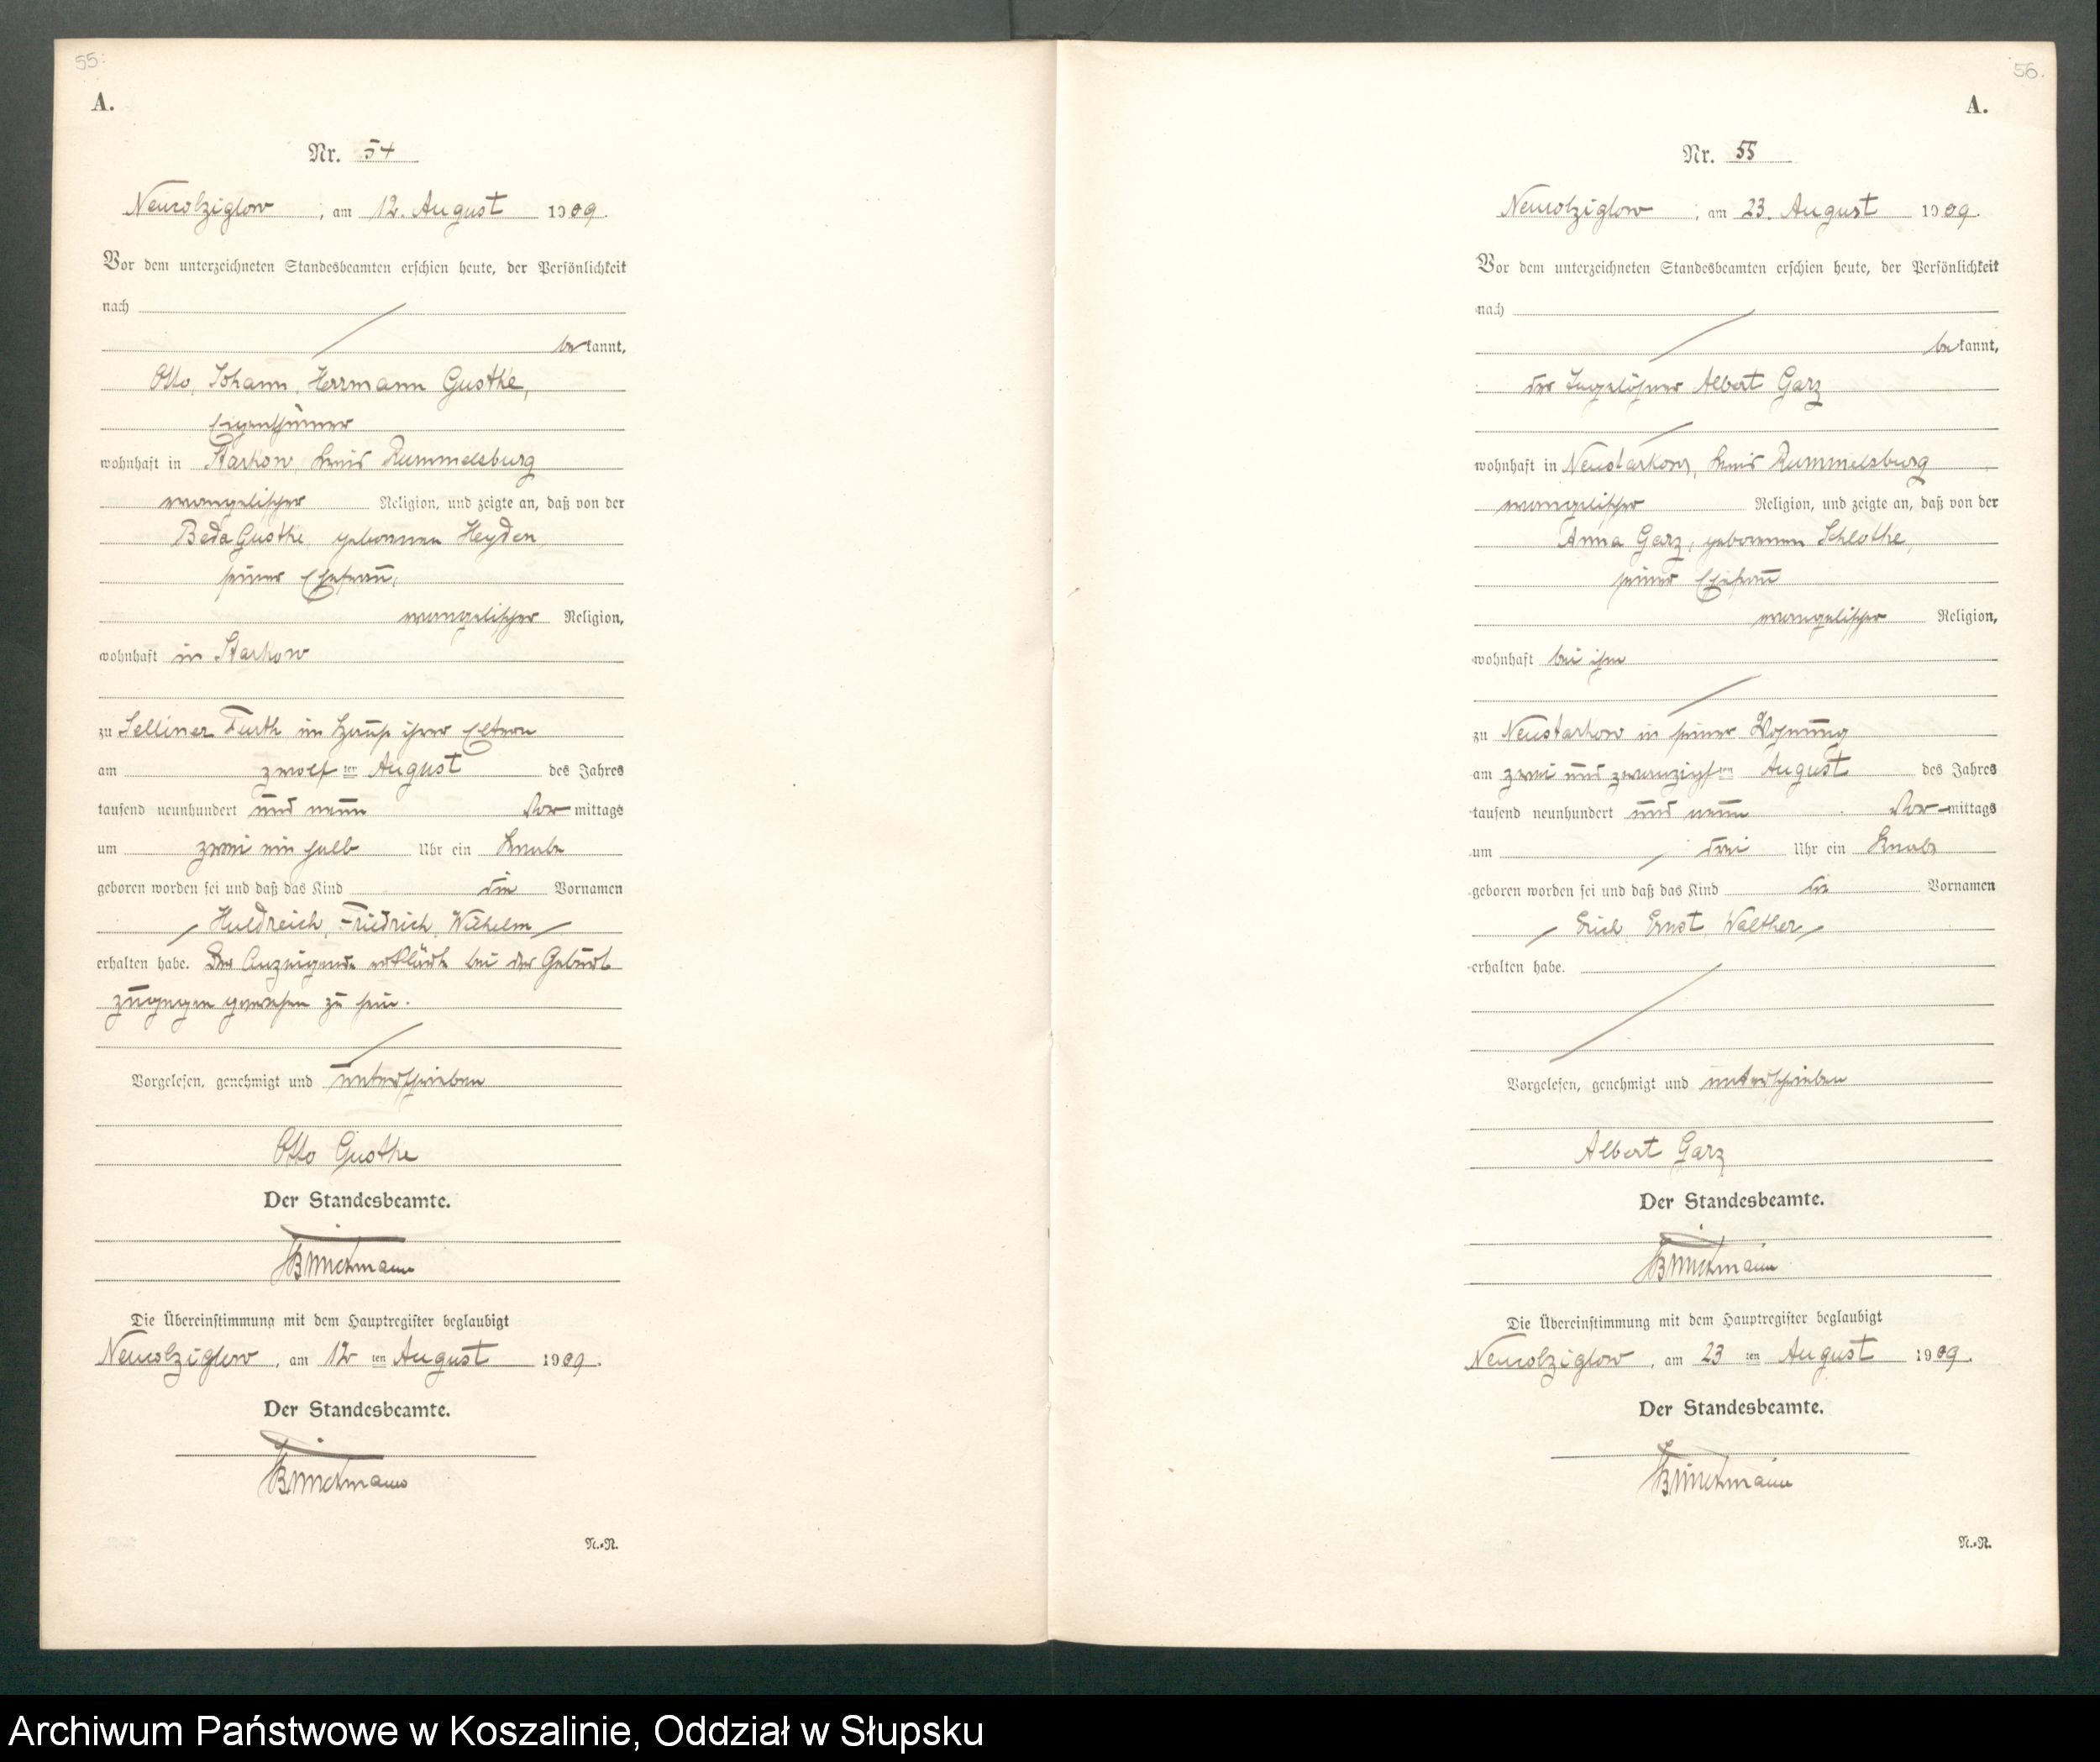 55.
A.
Nr. 54
Neukolziglow, am 12. August 1909.
Vor dem unterzeichneten Standesbeamten erschien heute, der Persönlichkeit
nach
bekannt,
Otto, Johann, Herrmann Gustke,
Eigenthümer
wohnhaft in Starkow, Kreis Rummelsburg
evangelischer Religion, und zeigte an, daß von der
Beda Gustke, geborenen Heyden,
seiner Ehefrau,
evangelischer Religion,
wohnhaft in Starkow
zu Selliner Furth im Hause ihrer Eltern
am zwölf ten August des Jahres
tausend neunhundert und neun Vormittags
um zwei ein halb Uhr ein Knabe
geboren worden sei und daß das Kind die Vornamen
Huldreich, Friedrich, Wilhelm
erhalten habe. Der Anzeigende erklärte bei der Geburt
zugegen gewesen zu sein.
Vorgelesen, genehmigt und unterschrieben
Otto Gustke
Der Standesbeamte.
Brinckmann
Die Übereinstimmung mit dem Hauptregister beglaubigt
Neukolziglow, am 12 ten August 1909.
Der Standesbeamte.
Brinckmann
N.-R.
56.
A.
Nr. 55
Neukolziglow, am 23. August 1909.
Vor dem unterzeichneten Standesbeamten erschien heute, der Persönlichkeit
nach
bekannt,
der Tagelöhner Albert Garz
wohnhaft in Neustarkow, Kreis Rummelsburg
evangelischer Religion, und zeigte an, daß von der
Anna Garz, geborenen Schlothe,
seiner Ehefrau
evangelischer Religion,
wohnhaft bei ihm
zu Neustarkow in seiner Wohnung
am zwei und zwanzigsten August des Jahres
tausend neunhundert und neun Vormittags
um drei Uhr ein Knabe
geboren worden sei und daß das Kind die Vornamen
Erich Ernst Walther
erhalten habe.
Vorgelesen, genehmigt und unterschrieben
Albert Garz
Der Standesbeamte.
Brinckmann
Die Übereinstimmung mit dem Hauptregister beglaubigt
Neukolziglow, am 23 ten August 1909.
Der Standesbeamte.
Brinckmann
N.-R.
Archiwum Państwowe w Koszalinie, Oddział w Słupsku